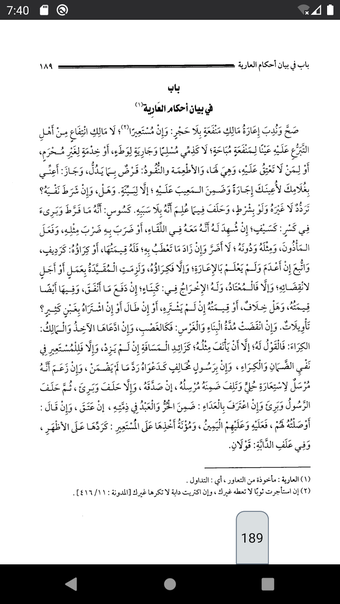 7:40
باب في بيان أحكام العارية ١٨٩
باب
في بيان أحكام العارية(١)
صَحَّ وَنُدِبَ إِعَارَةُ مَالِكِ مَنْفَعَةٍ بِلَا حَجْرٍ: وَإِنْ مُسْتَعِيرًا(٢)؛ لَا مَالِكِ انْتِفَاعٍ مِنْ أَهْلِ
التَّبَرُّعِ عَلَيْهِ عَيْنًا لِمَنْفَعَةٍ مُبَاحَةٍ؛ لَا كَذِمِّيٍّ مُسْلِمًا وَجَارِيَةٍ لِوَطْءٍ، أَوْ خِدْمَةٍ لِغَيْرِ مَحْرَمٍ،
أَوْ لِمَنْ لَا تَعْتِقُ عَلَيْهِ، وَهِيَ لَهَا، وَالْأَطْعِمَةُ وَالنُّقُودُ: قَرْضٌ بِمَا يَدُلُّ، وَجَازَ: أَعِنِّي
بِغُلَامِكَ لِأُعِينَكَ إِجَارَةً وَضَمِنَ الْمَغِيبَ عَلَيْهِ؛ إِلَّا لِبَيِّنَةٍ. وَهَلْ، وَإِنْ شَرَطَ نَفْيَهُ؟
تَرَدُّدٌ لَا غَيْرَهُ وَلَوْ بِشَرْطٍ، وَحَلَفَ فِيمَا عُلِمَ أَنَّهُ بِلَا سَبَبِهِ. كَسُوسٍ: أَنَّهُ مَا فَرَّطَ وَبَرِىءَ
فِي كَسْرِ: كَسَيْفٍ؛ إِنْ شُهِدَ لَهُ أَنَّهُ مَعَهُ فِي اللِّقَاءِ، أَوْ ضَرَبَ بِهِ ضَرْبَ مِثْلِهِ، وَفَعَلَ
الْمَأْذُونَ، وَمِثْلَهُ وَدُونَهُ ؛ لَا أَضَرَّ وَإِنْ زَادَ مَا تَعْطَبُ بِهِ؛ فَلَهُ قِيمَتُهَا، أَوْ كِرَاؤُهُ: كَرَدِيفٍ،
وَاتُّبِعَ إِنْ أَعْدَمَ وَلَمْ يَعْلَمْ بِالْإِعَارَةِ؛ وَإِلَّا فَكِرَاؤُهُ، وَلَزِمَتِ الْمُقَيَّدَةُ بِعَمَلٍ أَوْ أَجَلٍ
لِانْقِضَائِهِ؛ وَإِلَّا فَالْمُعْتَادُ، وَلَهُ الْإِخْرَاجُ فِي: كَبِنَاءٍ؛ إِنْ دَفَعَ مَا أَنْفَقَ، وَفِيهَا أَيْضًا
قِيمَتُهُ، وَهَلْ خِلَافٌ، أَوْ قِيمَتُهُ إِنْ لَمْ يَشْتَرِهِ، أَوْ إِنْ طَالَ أَوْ إِنِ اشْتَرَاهُ بِغَبْنٍ كَثِيرٍ؟
تَأْوِيلَاتٌ. وَإِنِ انْقَضَتْ مُدَّةُ الْبِنَاءِ وَالْغَرْسِ: فَكَالْغَصْبِ، وَإِنِ ادَّعَاهَا الْآخِذُ وَالْمَالِكُ:
الْكِرَاءَ: فَالْقَوْلُ لَهُ؛ إِلَّا أَنْ يَأْنَفَ مِثْلُهُ؛ كَزَائِدِ الْمَسَافَةِ إِنْ لَمْ يَزِدْ، وَإِلَّا فَلِلْمُسْتَعِيرِ فِي
نَفْيِ الضَّمَانِ وَالْكِرَاءِ ، وَإِنْ بِرَسُولٍ مُخَالِفٍ كَدَعْوَاهُ رَدَّ مَا لَمْ يَضْمَنْ، وَإِنْ زَعَمَ أَنَّهُ
مُرْسَلٌ لِاسْتِعَارَةِ حُلِيٍّ وَتَلِفَ ضَمِنَهُ مُرْسِلُهُ ، إِنْ صَدَّقَهُ ، وَإِلَّا حَلَفَ وَبَرِىَٔ، ثُمَّ حَلَفَ
الرَّسُولُ وَبَرِئَ وَإِنِ اعْتَرَفَ بِالْعَدَاءِ : ضَمِنَ الْحُرُّ وَالْعَبْدُ فِي ذِمَّتِهِ ، إِنْ عَتَقَ ، وَإِنْ قَالَ :
أَوْصَلْتُهُ لَهُمْ ، فَعَلَيْهِ وَعَلَيْهِمُ الْيَمِينُ ، وَمُؤْنَةُ أَخْذِهَا عَلَى الْمُسْتَعِيرِ : كَرَدِّهَا عَلَى الْأَظْهَرِ ،
وَفِي عَلَفِ الدَّابَّةِ: قَوْلَانِ.
(١) العارية : مأخوذة من التعاور ، أي : التداول .
(٢) إن استأجرت ثوبًا لا تعطه غيرك ، وإن اكتريت دابة لا تكرها غيرك [المدونة : ١١/ ٤١٦] .
189